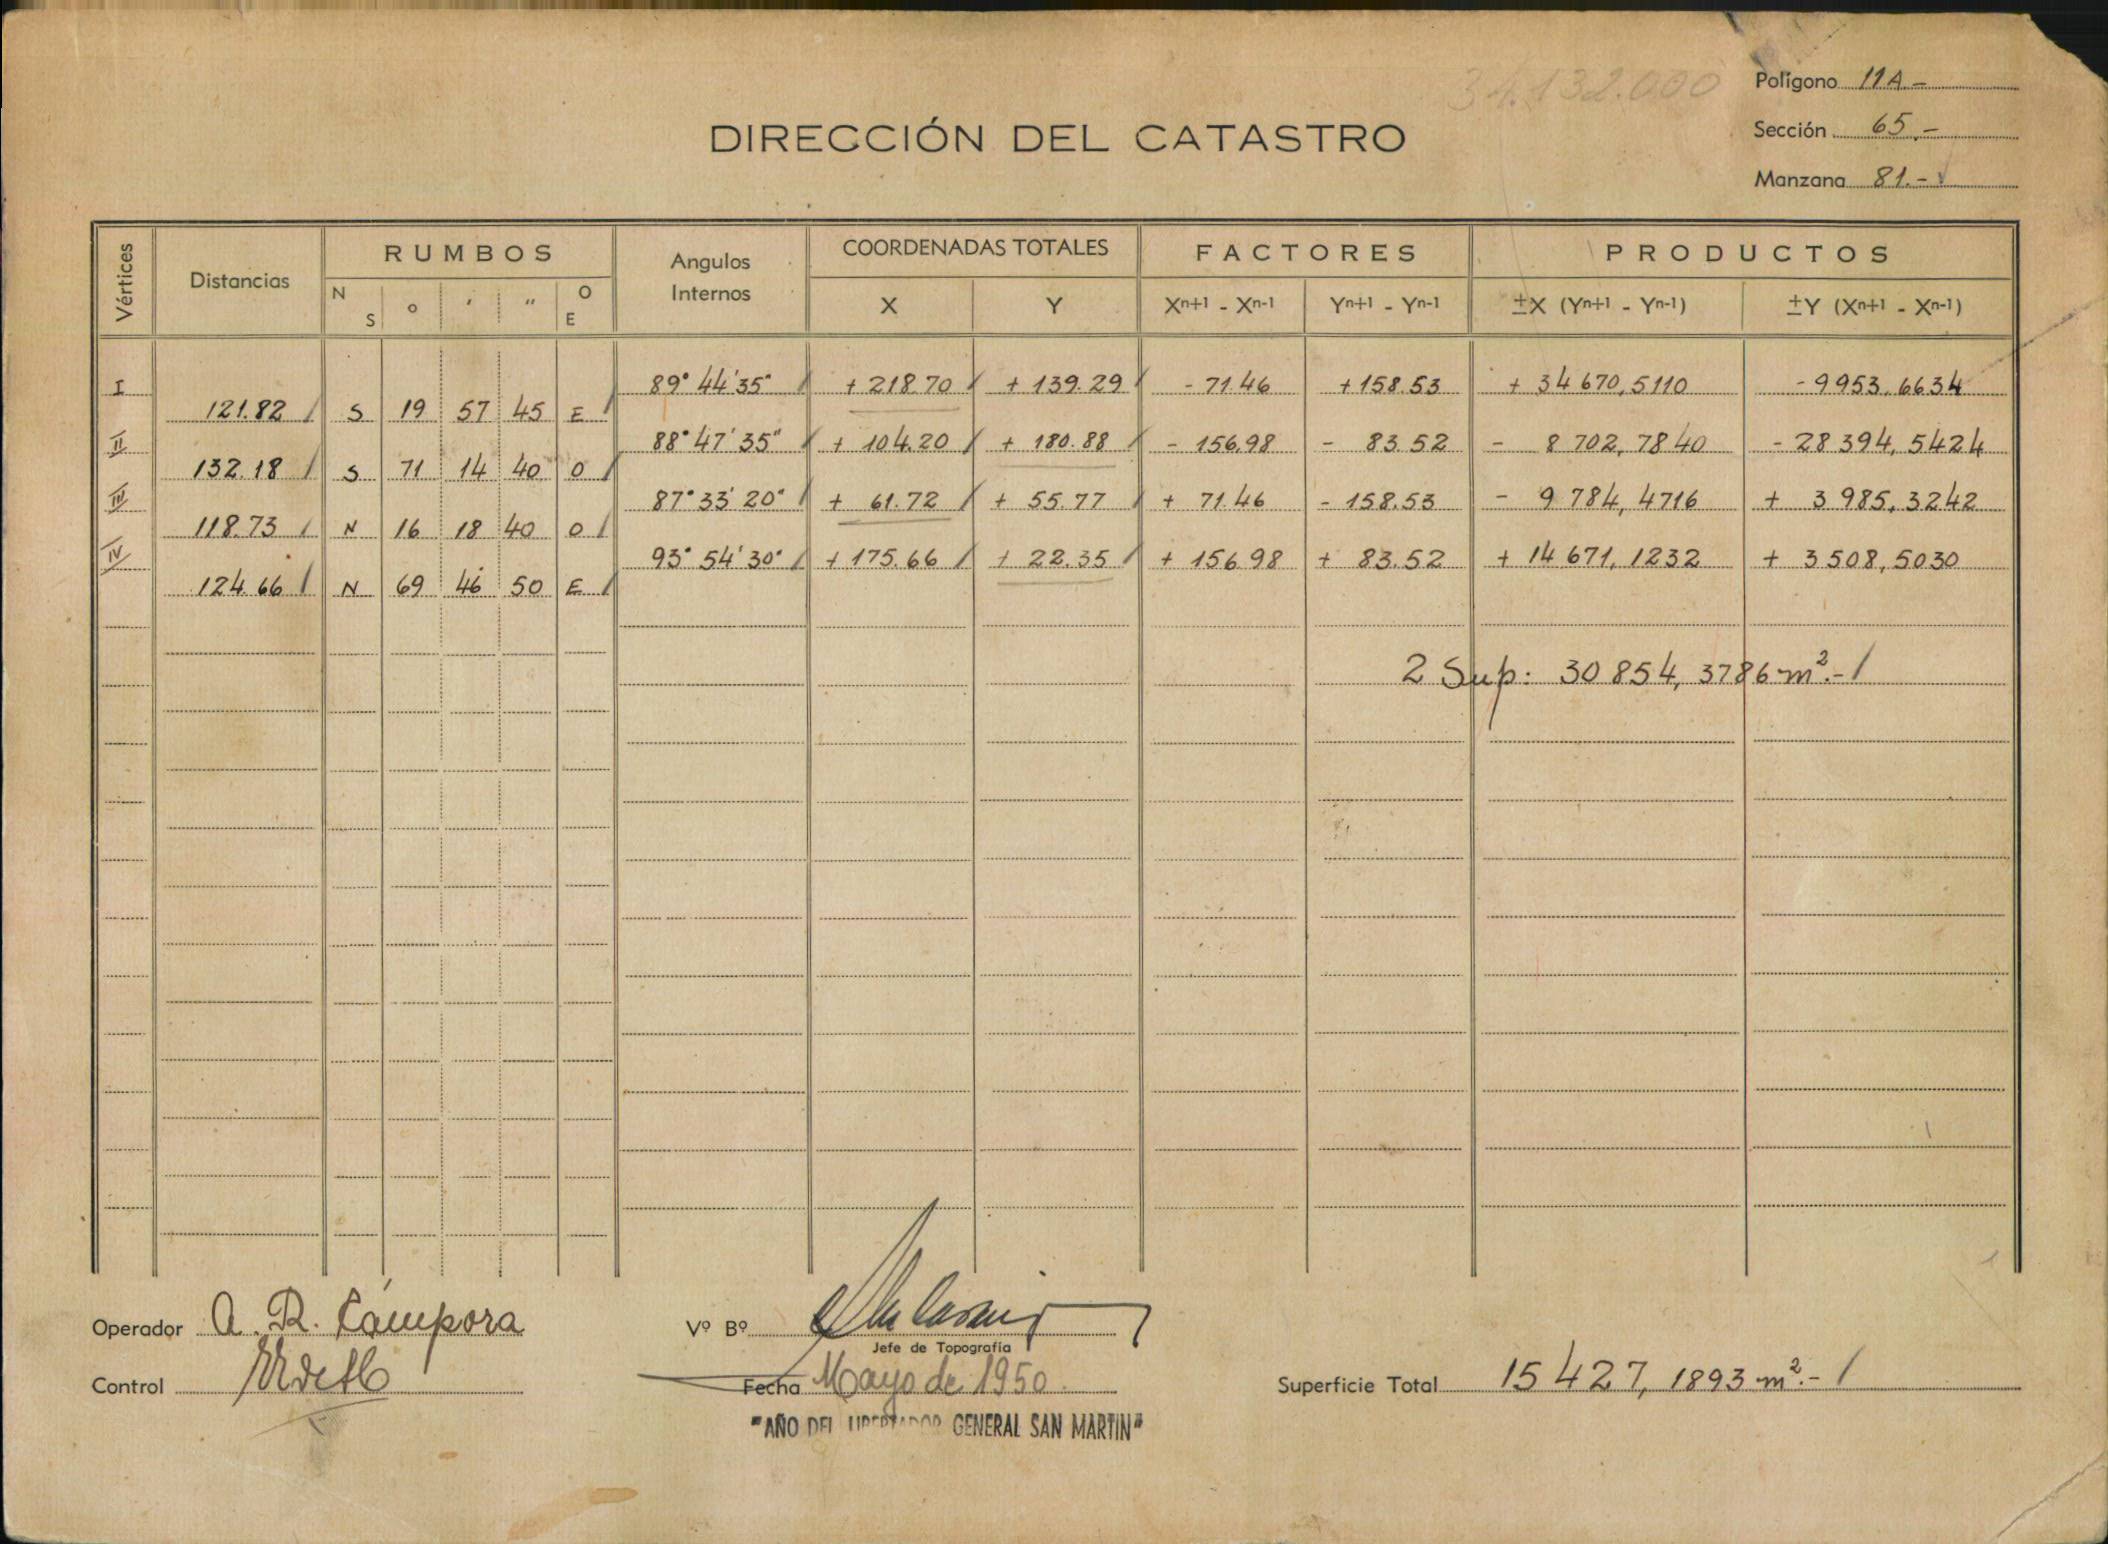 34.132.000
Polígono 11A.-
Sección 65.-
Manzana 81.-
DIRECCIÓN DEL CATASTRO
Vértices Distancias RUMBOS Angulos Internos COORDENADAS TOTALES FACTORES PRODUCTOS
N S ° ' " O E X Y Xn+1 - Xn-1 Yn+1 - Yn-1 ±X (Yn+1 - Yn-1) ±Y (Xn+1 - Xn-1)
I 89° 44' 35" + 218.70 + 139.29 - 71.46 + 158.53 + 34 670,5110 - 9953,6634
121.82 S 19 57 45 E
II 88° 47' 35" + 104.20 + 180.88 - 156.98 - 83.52 - 8 702,7840 - 28 394,5424
132.18 S 71 14 40 O
III 87° 33' 20" + 61.72 + 55.77 + 71.46 - 158.53 - 9 784,4716 + 3 985,3242
118.73 N 16 18 40 O
IV 93° 54' 30" + 175.66 + 22.35 + 156.98 + 83.52 + 14 671,1232 + 3 508,5030
124.66 N 69 46 50 E
2 Sup: 30 854,3786 m².-
Operador A. R. Cámpora
Vº Bº
Jefe de Topografía
Control
Fecha Mayo de 1950.
Superficie Total 15 427,1893 m².-
"AÑO DEL LIBERTADOR GENERAL SAN MARTIN"